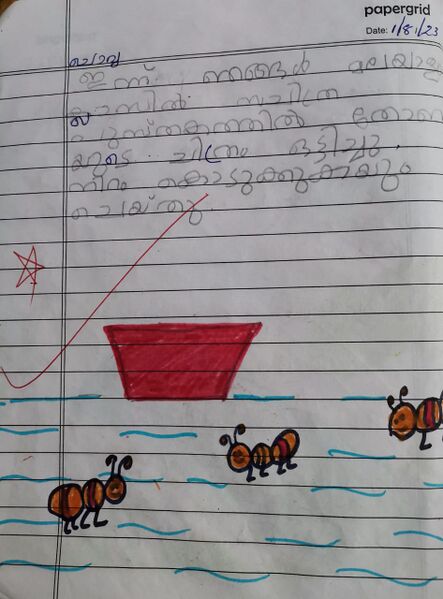 papergrid
Date: 1/8/23
ചൊവ്വ
ഇന്ന് ഞങ്ങൾ മലയാളം
ക്ലാസിൽ സചിത്ര
പുസ്തകത്തിൽ തോണി
യുടെ ചിത്രം ഒട്ടിച്ചു.
നിറം കൊടുക്കുകയും
ചെയ്തു.